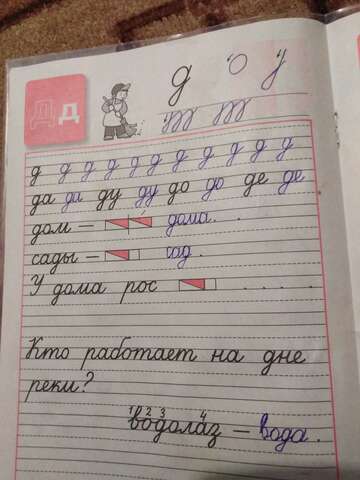 Д д
д
д д д д д д д д д д д д
да да ду ду до до де де
дом – дома.
сады – сад.
У дома рос
Кто работает на дне
реки?
1 2 3 4
водолаз – вода.